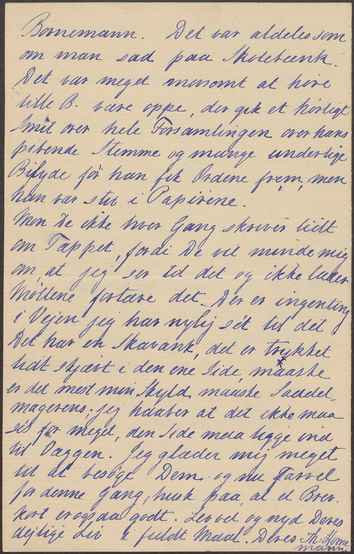 Bornemann. Det var aldeles som
om man sad paa Skolebænk.
Det var meget morsomt at høre
lille B. være oppe, der gik et hørligt
Smil over hele Forsamlingen over hans
pibende Stemme og mange underlige
Bilyde før han fik Ordene frem, men
han var stiv i Papirerne.
Men De ikke hver Gang skriver lidt
om Tæppet, fordi De vil minde mig
om at jeg ser til det og ikke lader
Møllene fortære det. Der er ingenting
i Vejen jeg har nylig set til det
Det har en Skavank, det er trykket
lidt skjævt i den ene Side, maaske
er det mest min Skyld, maaske Saddel
magerens. Jeg haaber at det ikke maa
ses for meget, den Side maa ligge ind
til Væggen. Jeg glæder mig meget
til at besøge Dem og nu Farvel
for denne Gang, husk paa, at et Brev
kort er ogsaa godt. Lev vel og nyd Deres
dejlige Liv i fuldt Maal. Deres Th.
mann